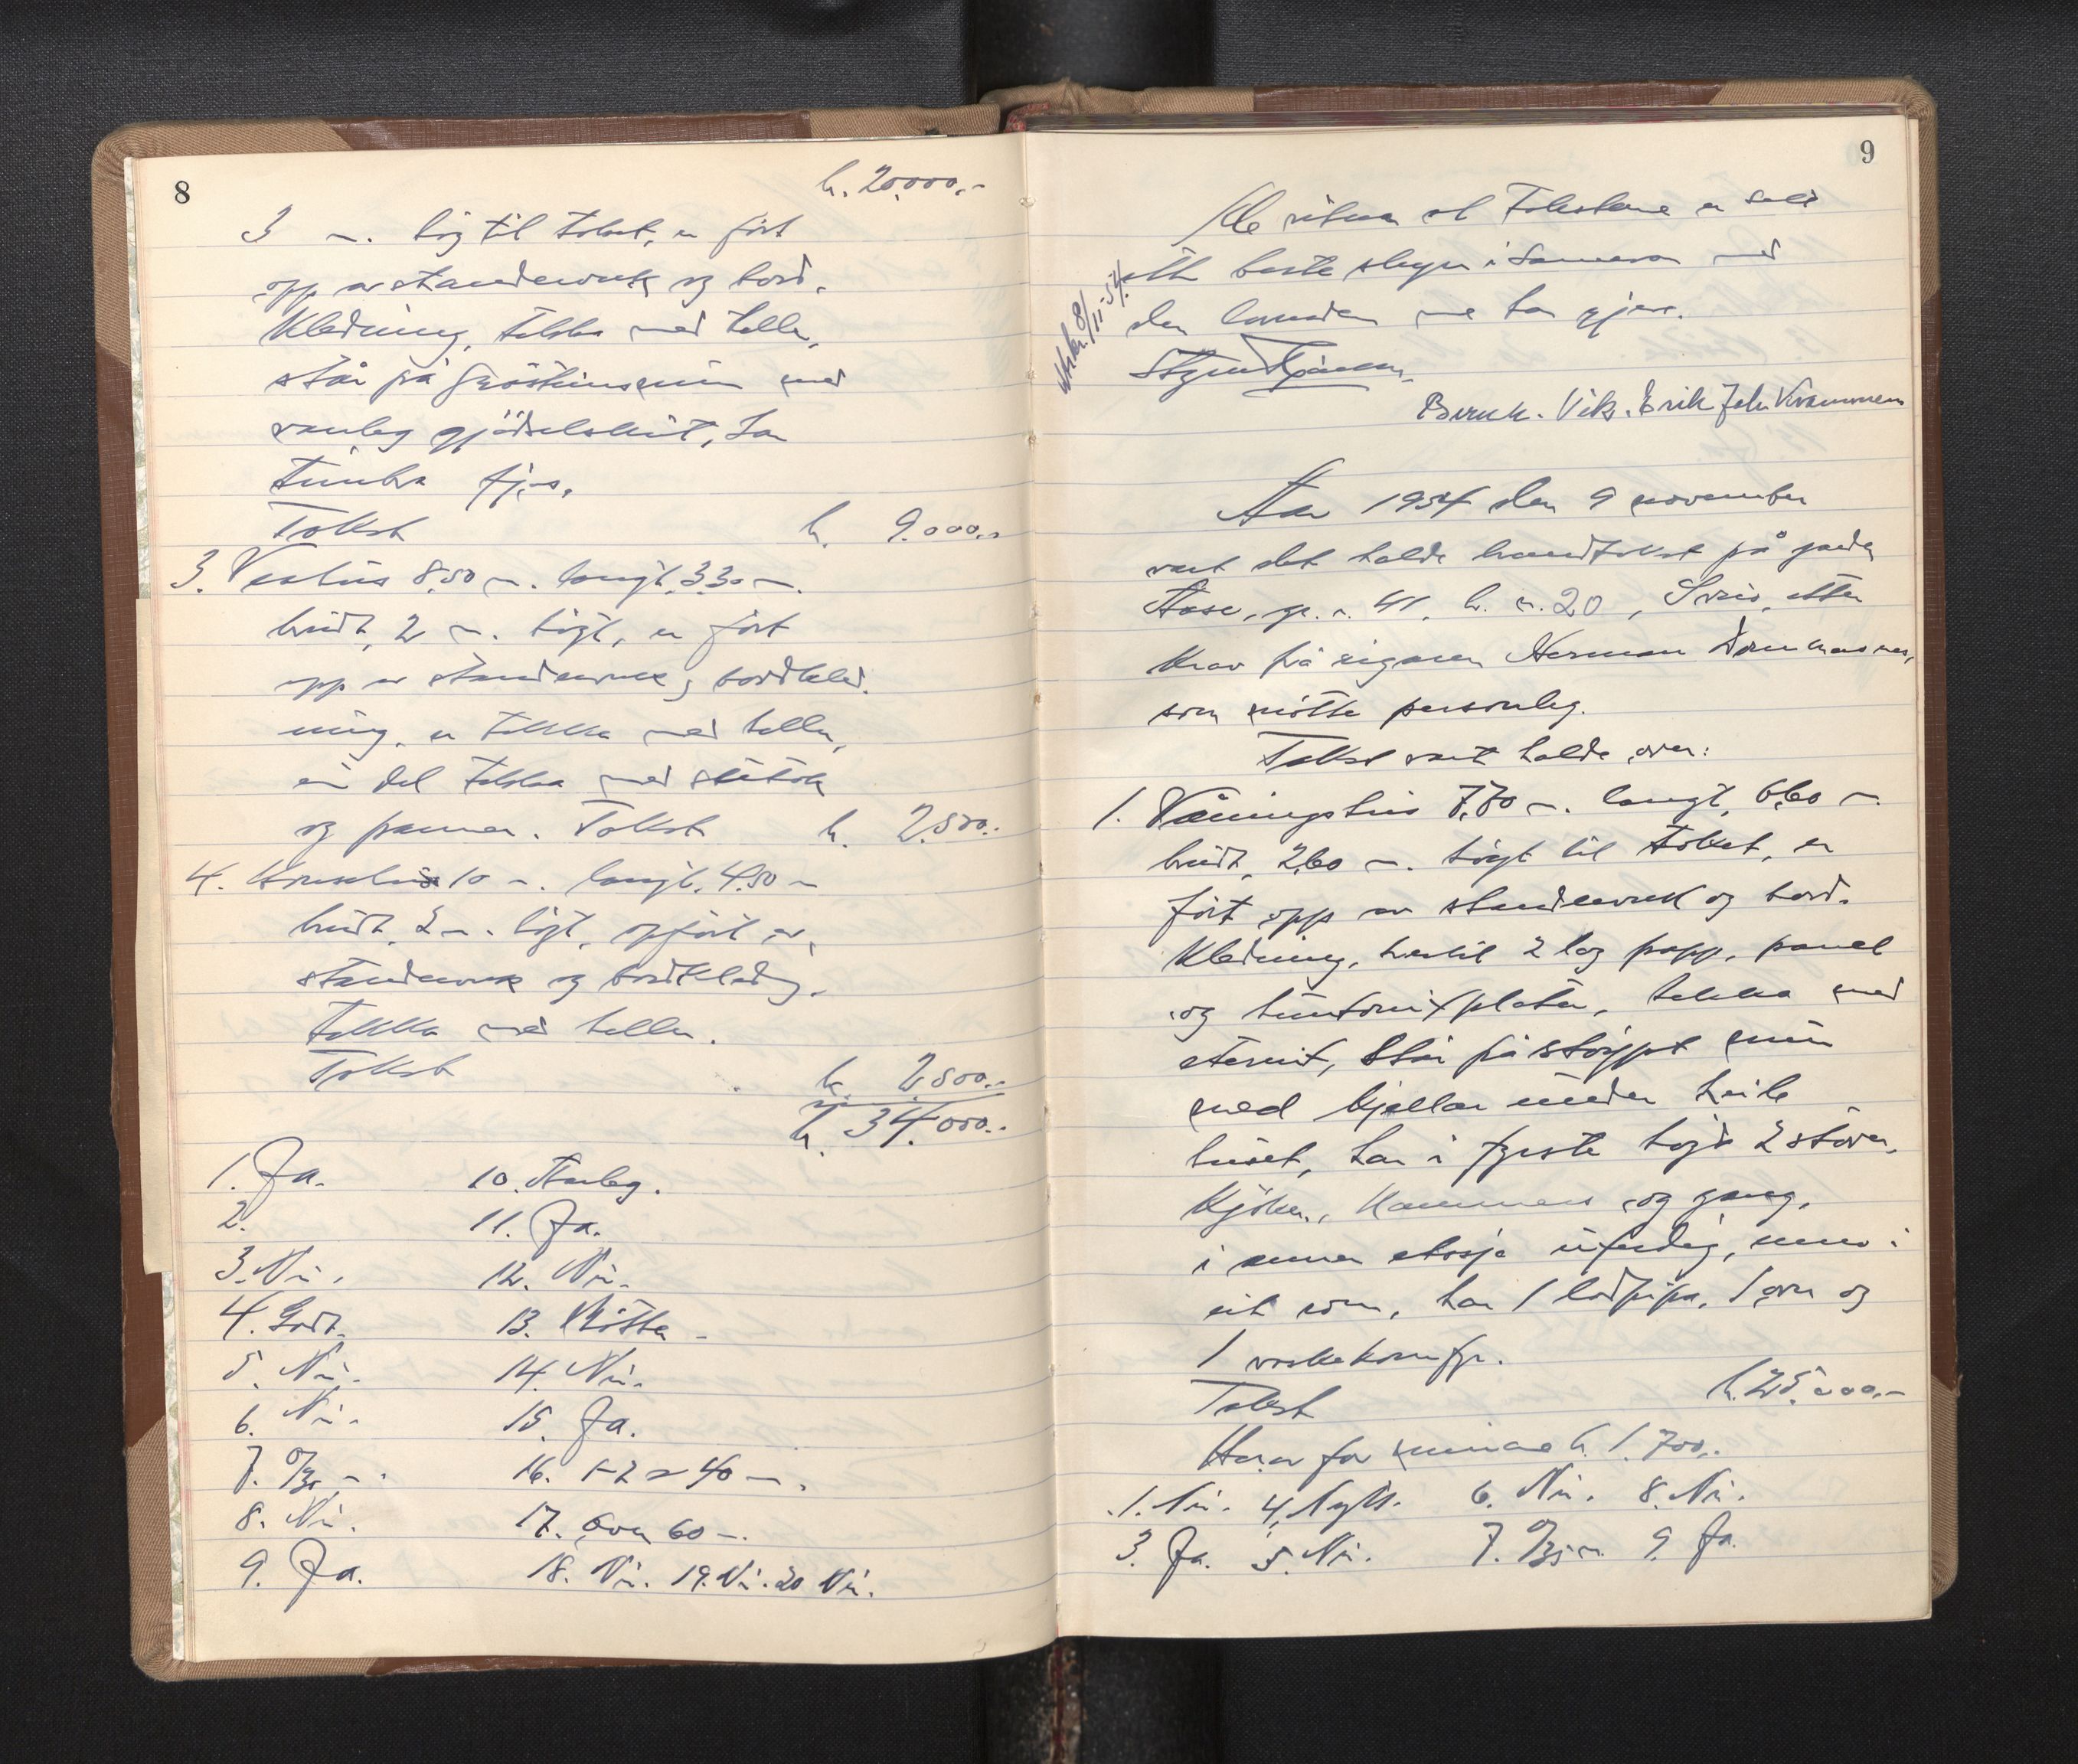 8
kr. 20.000.-
3 m. høg til taket, er ført
opp av standerverk og bord-
kledning, tekka med heller,
står på gråsteinsmur med
vanleg gjødselskut, har
timbra fjøs.
Takst kr. 9.000.-
3. Vedhus 8.50 m. langt, 3.30 m.
breidt, 2 m. høgt, er ført
opp av standerverk, bordkled-
ning, er tekka med heller,
ein del tekka med
og panner. Takst kr. 2.500.-
4. 10 m. langt, 4.50 m
breidt, 2 m. høgt, oppført av
standerverk og bordkledng.
Tekka med heller.
Takst kr. 2.500.-
kr. 34.000.-
1. Ja. 10. Aarleg.
2. 11. Ja.
3. Nei. 12. Nei.
4. Godt. 13. Måtta
5. Nei. 14. Nei.
6. Nei. 15. Ja.
7. 0/30 m. 16. 1-2 x 40 m.
8. Nei. 17. Over 60 m.
9. Ja. 18. Nei. 19. Nei. 20 Nei.
9
Me vitnar at Takstane er sett
etter beste skyn i samsvar med
den kunnskapen me har gjere.
8/11-54.
Styrmd
Bernh. Vik. Erik Joh Kvammen
Aar 1954 den 9 november
vart det halde brandtakst på garden
Aase, gr. n. 41, br. n. 20, Sveio, etter
krav frå eigaren Herman
som møtte personleg.
Takst vart halde over:
1. Våningshus 7,70 m. langt, 6,60 m.
breidt, 2,60 m. høgt til taket, er
ført opp av standerverk og bord-
kledning, hertil 2 lag papp, panel
og huntonitplater, tekka med
eternit, står på støypt mur
med kjellar under heile
huset, har i fyrste høgd 2 stover,
kjøken, kammers og gang,
i annen etasje uferdig, murt i
eit rom, har 1 lodpipa, 1 ovn og
1 vaskekomfyr.
Takst kr. 25.000.-
Herav for murane kr. 1.700.-
1. Nei. 4. Nytt. 6. Nei. 8. Nei.
3. Ja. 5. Nei. 7. 0/35 m. 9. Ja.